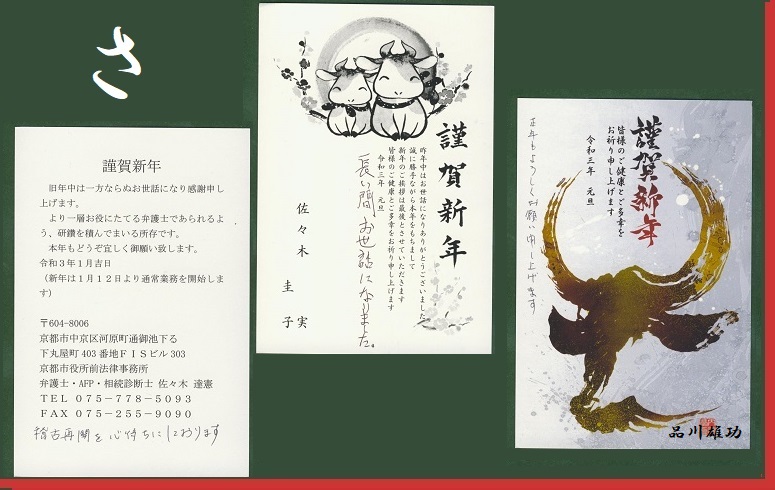 さ
謹賀新年
旧年中は一方ならぬお世話になり感謝申し
上げます。
より一層お役にたてる弁護士であられるよ
う、研鑽を積んでまいる所存です。
本年もどうぞ宜しく御願い致します。
令和3年1月吉日
(新年は1月12日より通常業務を開始しま
す)
〒604-8006
京都市中京区河原町通御池下る
下丸屋町 403 番地FISビル 303
京都市役所前法律事務所
弁護士・AFP・相続診断士 佐々木 達憲
TEL 075-778-5093
FAX 075-255-9090
稽古再開を心待ちにしております
謹賀新年
昨年中はお世話になりありがとうございました
誠に勝手ながら本年をもちまして
新年のご挨拶は最後とさせていただきます
皆様のご健康とご多幸をお祈り申し上げます
令和三年 元旦
長い間お世話になりました。
佐々木 実
圭子
謹賀新年
皆様のご健康とご多幸を
お祈り申し上げます
令和三年 元旦
本年もよろしくお願い申し上げます
品川雄功